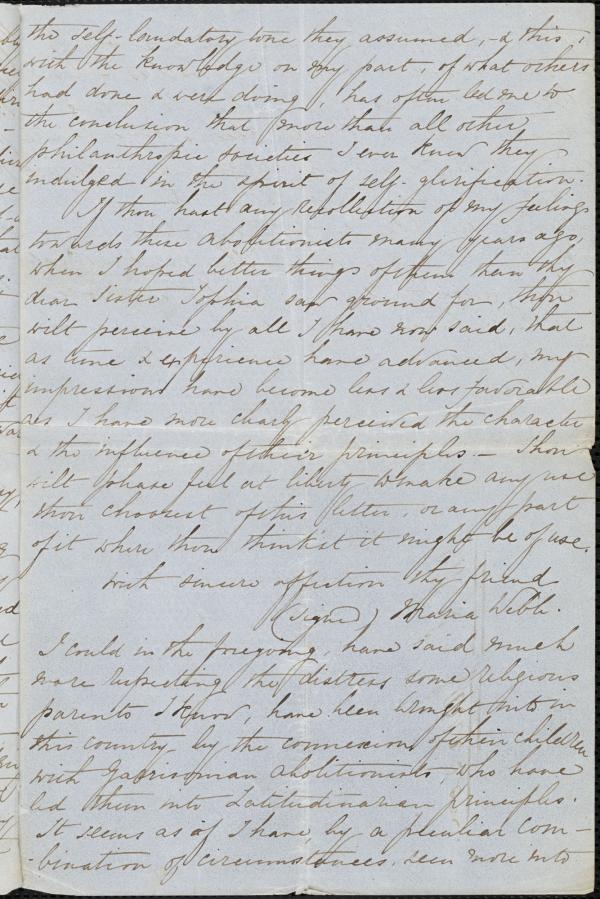 the self-laudatory tone they assumed, - & this,
with the knowledge on my part, of what others
had done & were doing, has often led me to
the conclusion that more than all other
philanthropic societies I ever knew they
indulged in the spirit of self-glorification.
If thou hast any recollection of my feelings
towards these abolitionists many years ago,
when I hoped better things of them than thy
dear Sister Sophia saw ground for, thou
wilt perceive by all I have now said, that
as time & experience have advanced, my
impressions have become less & less favorable
as I have more clearly perceived the character
& the influence of their principles - Thou
wilt please feel at liberty to make any use
thou choosest of this letter, or any part
of it where thou thinkst it might be of use.
With sincere affection thy friend
(signed) Maria Webb.
I could in the foregoing, have said much
more respecting the distress some religious
parents I know, have been brought into in
this country - by the connexion of their children
with Garrisonian abolitionists, who have
led them into Latitudinarian principles.
It seems as if I have by a peculiar com-
-bination of circumstances, seen more into